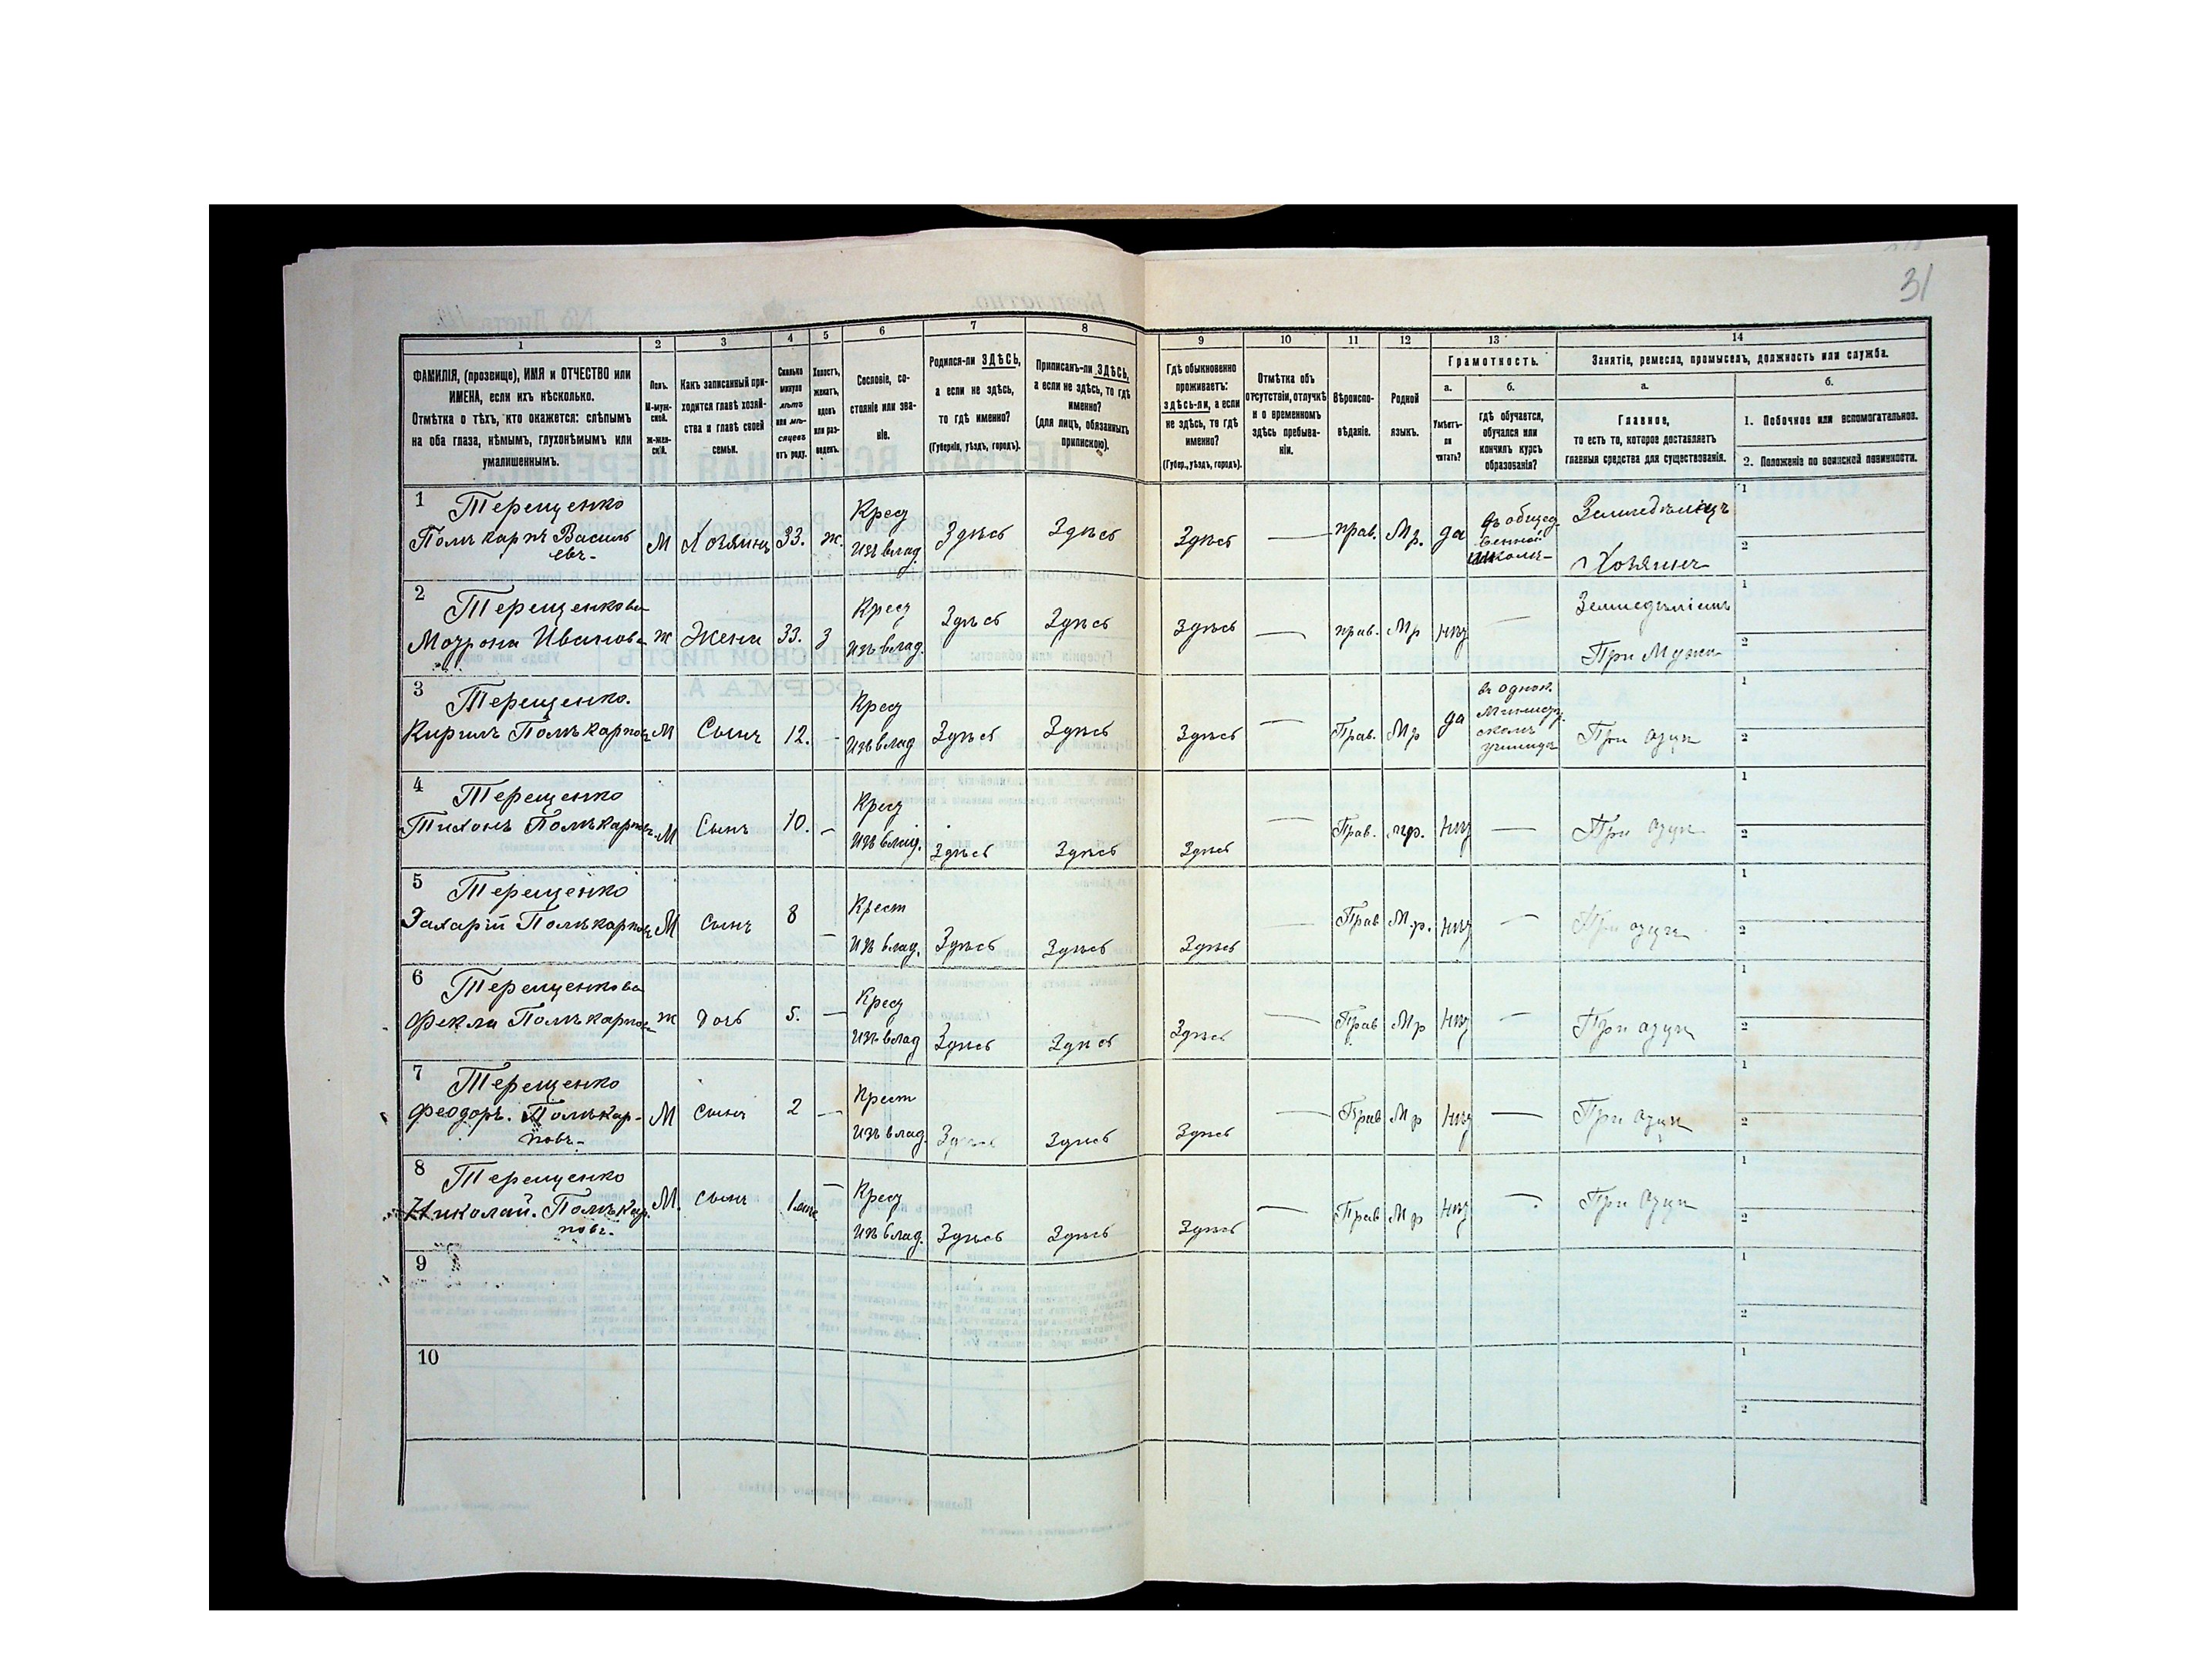 31
1
2
3
4
5
6
7
8
9
10
11
12
13
14
ФАМИЛІЯ, (прозвище), ИМЯ и ОТЧЕСТВО или
ИМЕНА, если ихъ нѣсколько.
Отмѣтка о тѣхъ, кто окажется: слѣпымъ
на оба глаза, нѣмымъ, глухонѣмымъ или
умалишеннымъ.
Полъ.
М-муж-
ской.
ж-жен-
скій.
Какъ записанный при-
ходится главѣ хозяй-
ства и главѣ своей
семьи.
Сколько
минуло
лѣтъ
или мѣ-
сяцевъ
отъ роду.
Холостъ,
женатъ,
вдовъ
или раз-
веденъ.
Сословіе, со-
стояніе или зва-
ніе.
Родился-ли ЗДѢСЬ,
а если не здѣсь,
то гдѣ именно?
(Губернія, уѣздъ, городъ).
Приписанъ-ли ЗДѢСЬ,
а если не здѣсь, то гдѣ
именно?
(для лицъ, обязанныхъ
припискою).
Гдѣ обыкновенно
проживаетъ:
здѣсь-ли, а если
не здѣсь, то гдѣ
именно?
(Губер., уѣздъ, городъ).
Отмѣтка объ
отсутствіи, отлучкѣ
и о временномъ
здѣсь пребыва-
ніи.
Вѣроиспо-
вѣданіе.
Родной
языкъ.
Грамотность.
а.
б.
Умѣетъ-
ли
читать?
гдѣ обучается,
обучался или
кончилъ курсъ
образованія?
Занятіе, ремесло, промыселъ, должность или служба.
а.
б.
Главное,
то есть то, которое доставляетъ
главныя средства для существованія.
1. Побочное или вспомогательное.
2. Положеніе по воинской повинности.
1 Терещенко
Поликарпъ Василь
евъ-
М Хозяинъ 33. ж. Крест
изъ влад. Здѣсь Здѣсь Здѣсь — прав. Мр. да въ общес.
венной
школѣ- Земледѣлецъ
Хозяинъ 1
2
2 Терещенкова
Мотрона Иванова ж Жена 33. з Крест
изъ влад. Здѣсь Здѣсь Здѣсь — прав. Мр нѣт — Земледѣліемъ
При Мужи 1
2
3 Терещенко.
Кирилъ Поликарповъ М Сынъ 12. - Крест
изъ влад Здѣсь Здѣсь Здѣсь — Прав. Мр да въ однок.
Министер.
скомъ
училищѣ При отцѣ 1
2
4 Терещенко
Тихонъ Поликарповъ. М Сынъ 10. — Крест
изъ влад. Здѣсь Здѣсь Здѣсь — Прав. мр. нѣт — При отцѣ 1
2
5 Терещенко
Захарій Поликарповъ М Сынъ 8 — Крест
изъ влад. Здѣсь Здѣсь Здѣсь — Прав М.р. нѣт — При отцѣ 1
2
6 Терещенкова
Фекла Поликарпов ж дочь 5. — Крест
изъ влад Здѣсь Здѣсь Здѣсь — Прав Мр нѣт — При отцѣ 1
2
7 Терещенко
Феодоръ. Поликар-
повъ- М Сынъ 2 — Крест
изъ влад. Здѣсь Здѣсь Здѣсь — Прав Мр нѣт — При отцѣ 1
2
8 Терещенко
Николай. Поликар.
повъ. М. Сынъ — Крест
изъ влад. Здѣсь Здѣсь Здѣсь — Прав Мр нѣт — При отцѣ 1
2
9 1
2
10 1
2